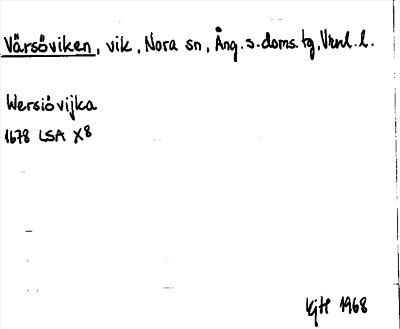 Värsöviken, vik, Nora sn, Ång.s.doms.tg, Vrnl.l.
Wersiövijka
1678 LSA X8
KjH 1968